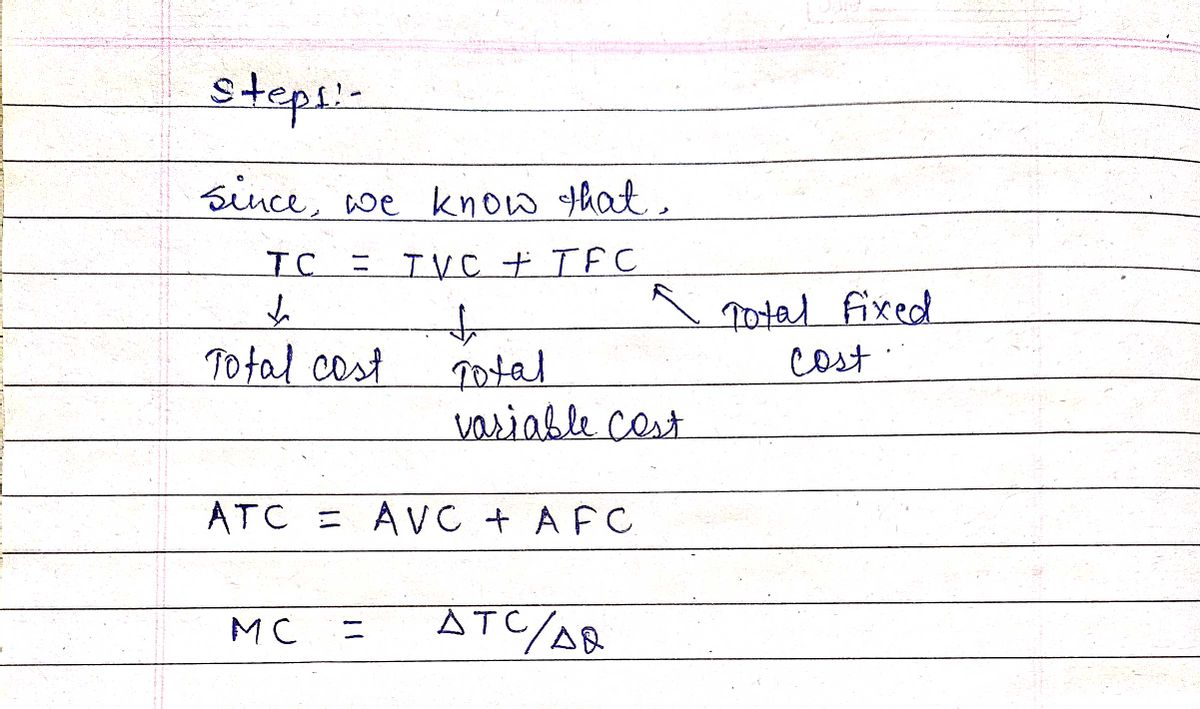 Steps:-
Since, we know that,
TC = TVC + TFC
↓ ↓ ↖ Total Fixed
Total cost Total cost.
variable cost
ATC = AVC + AFC
MC = ΔTC/ΔQ